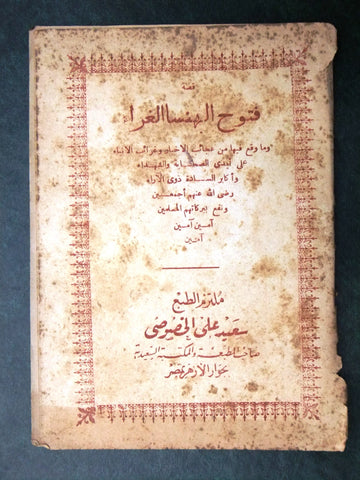 قصة
فتوح البهنسا الغراء
وما وقع فيها من عجائب الأخبار وغرائب الأنباء
على أيدى الصحابة والشهداء
وأكابر السادة ذوى الآراء
رضى الله عنهم أجمعين
ونفع ببركاتهم المسلمين
آمين آمين
آمين
ملتزم الطبع
سعيد على الخصوصى
صاحب المطبعة والمكتبة السعيدية
بجوار الأزهر بمصر